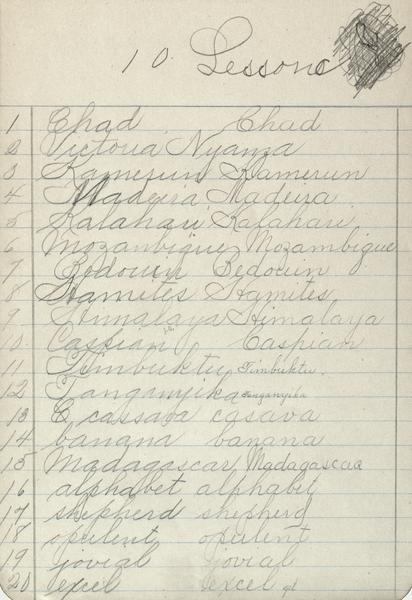 10. Lesson
1 Chad Chad
2 Victoria Nyanza
3 Kamerun Kamerun
4 Madeira Madeira
5 Kalahari Kalahari
6 Mozanbique Mozambique
7 Bedouin Bedouin
8 Hamites Hamites
9 Himalaya Himalaya
10 Caspian Caspian
11 Timbuktu Timbuktu.
12 Tanganyika Tanganyika
13 cassava casava
14 banana banana
15 Madagascar Madagascar
16 alphabet alphabet
17 shepherd shepherd
18 opulent opulent
19 jovial jovial
20 excel excel